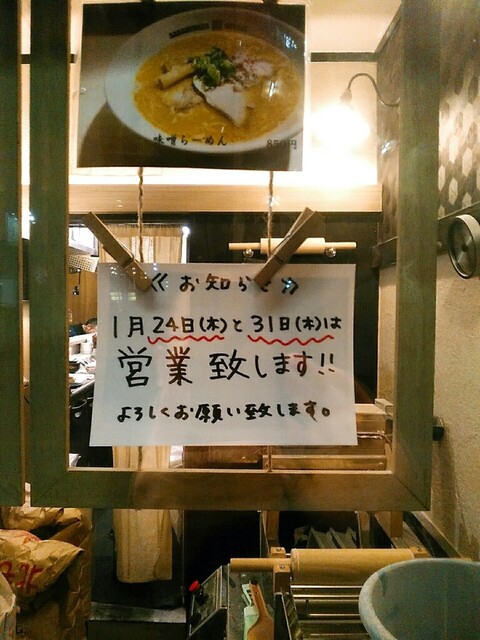 味噌らーめん 850円
《 お知らせ 》
1月24日(木)と31日(木)は
営業致します!!
よろしくお願い致します。